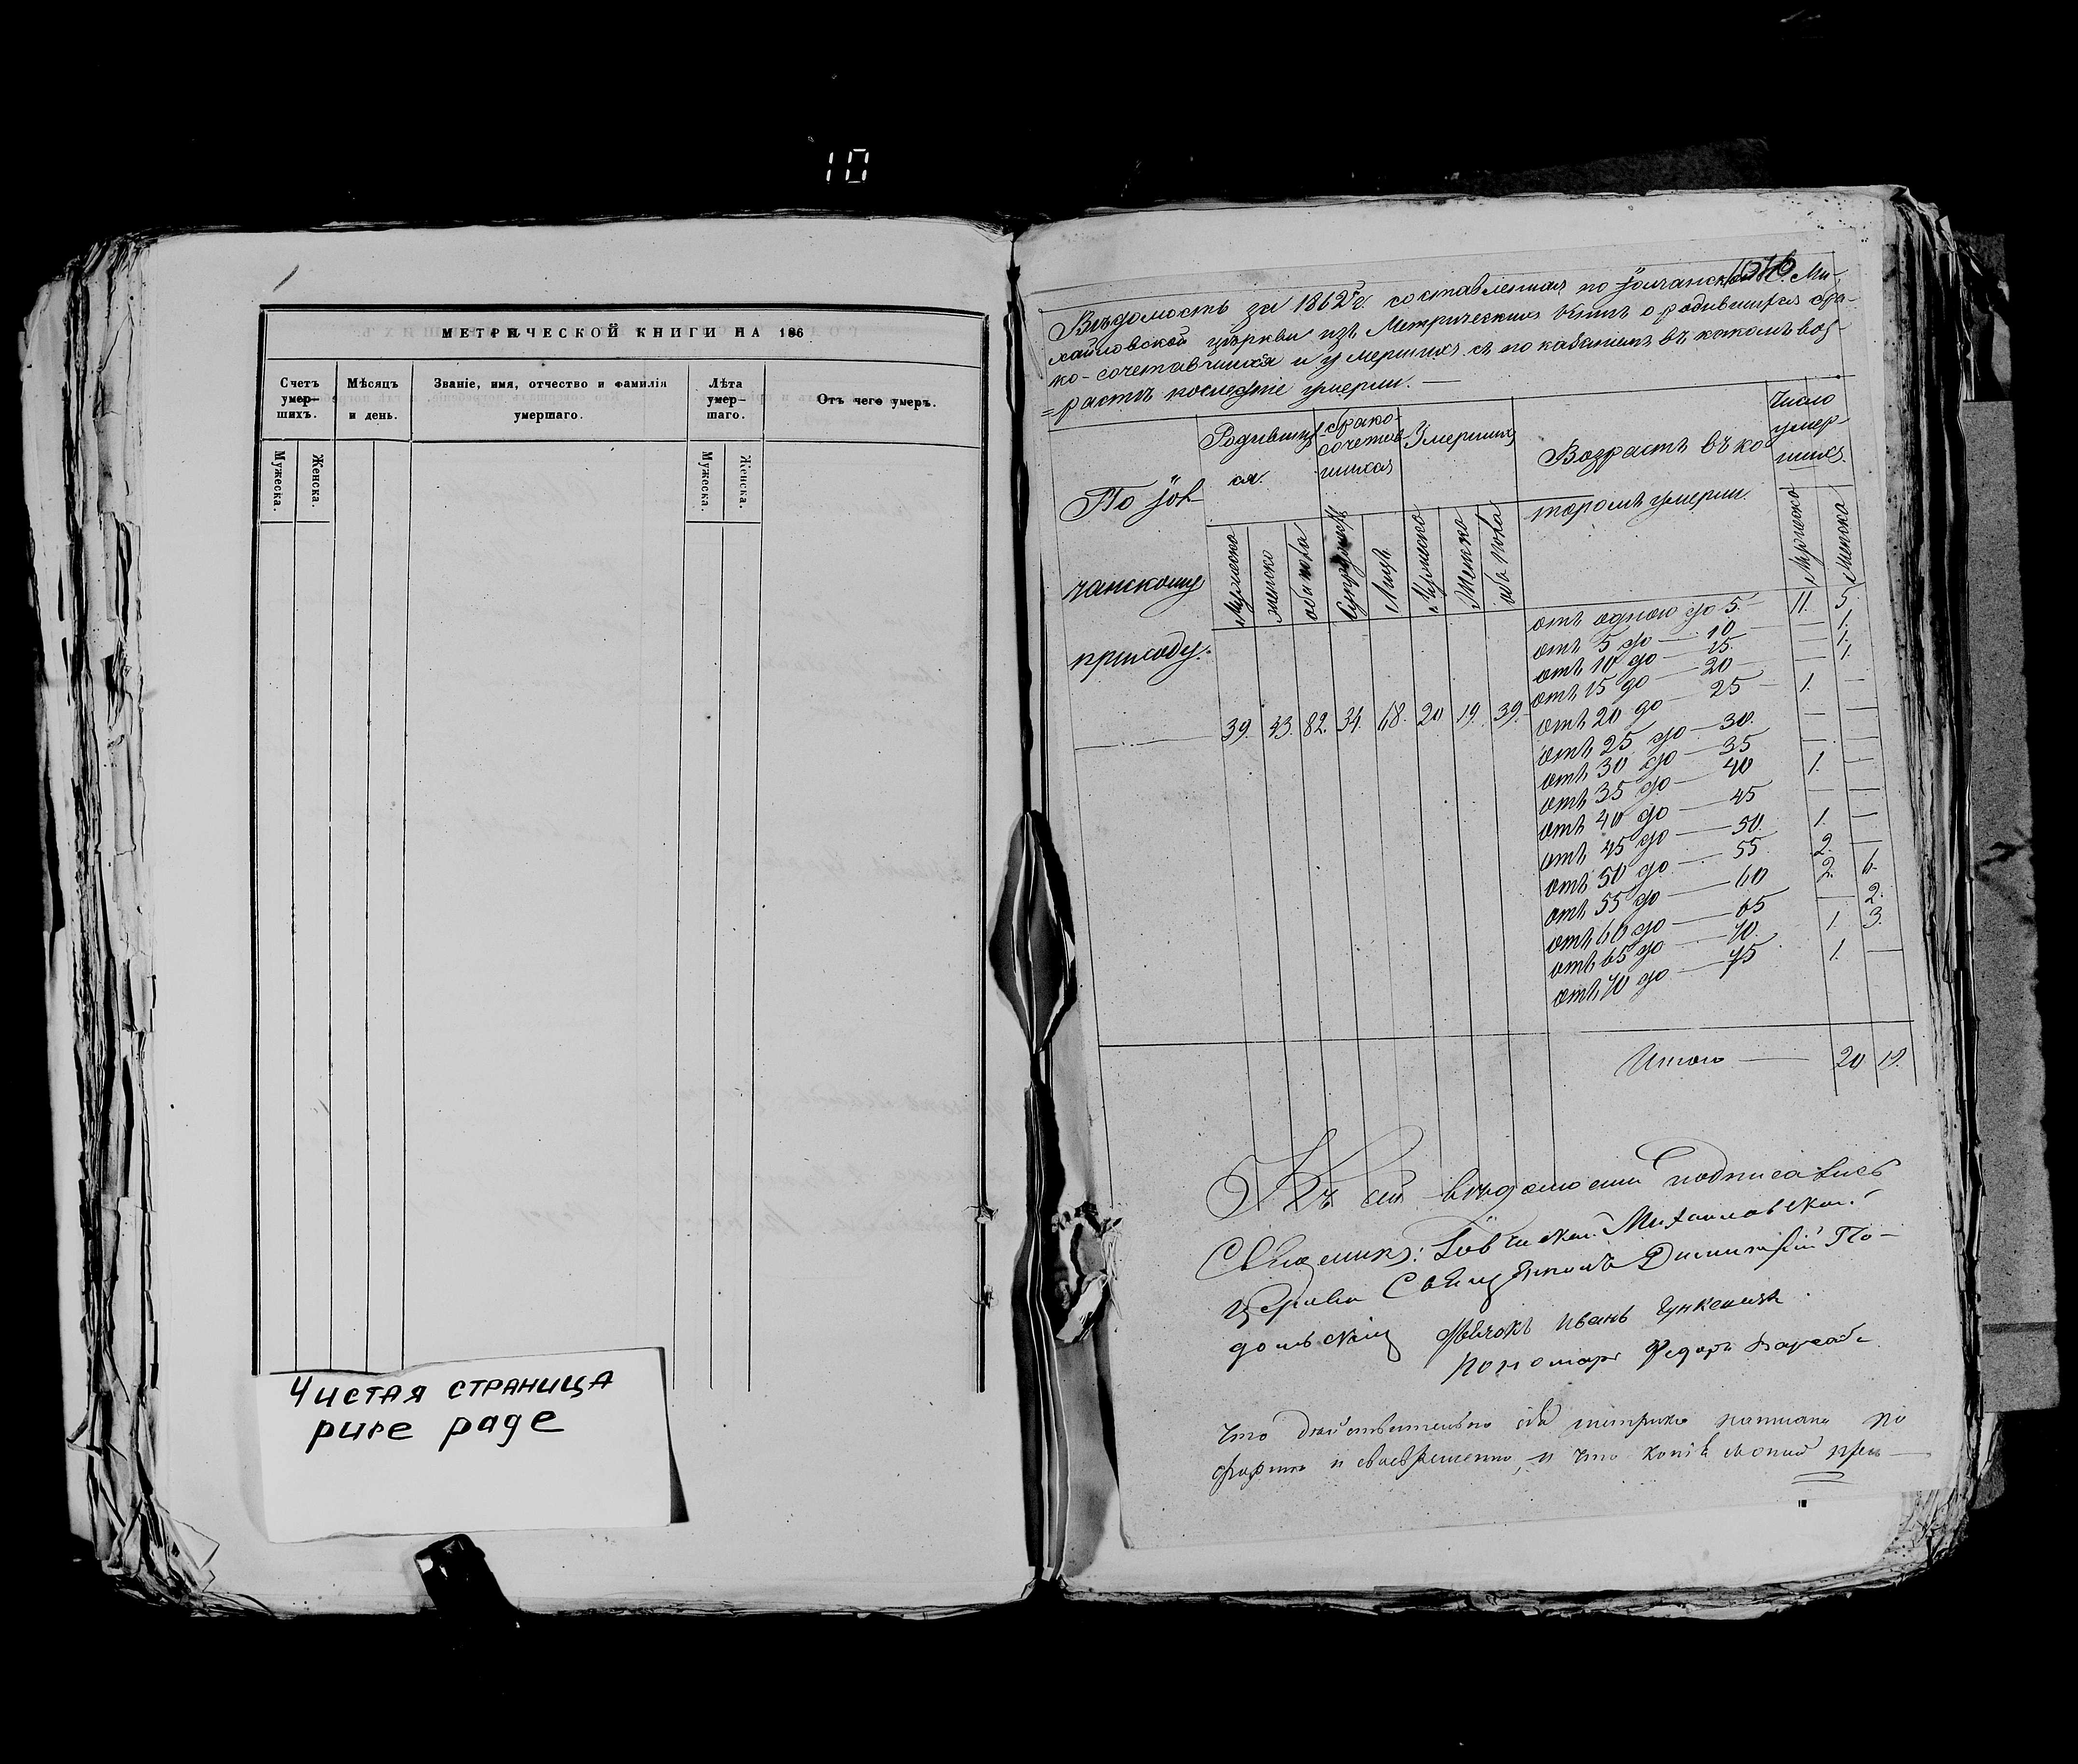 10
МЕТРИЧЕСКОЙ КНИГИ НА 186
Счетъ умер— шихъ.
Мѣсяцъ и день.
Званіе, имя, отчество и фамилія умершаго.
Лѣта умер— шаго.
Отъ чего умеръ.
Мужеска.
Женска.
Мужеска.
Женска.
Чистая страница
pure page
Вѣдомость за 1862 г. составленная по Ми-
хайловской церкви изъ Метрическихъ книгъ о родившихся бра-
ко-сочетавшихся и умершихъ съ показаніемъ въ какомъ воз-
растѣ последніе умерли. —
По
чанскому
приходу.
Родивших
ся.
брако-
сочетав-
шихся
Умершихъ
Возрастъ въ ко
торомъ умерли.
Число
умер-
шихъ.
Мужеска
женска
оба пола
Супружествъ
Лицъ
Мужеска
Женска
оба пола
Мужеска
Женска
39. 43. 82. 34. 68. 20 19. 39.
отъ одного до 5. — 11. 5.
отъ 5 до — 10 — 1.
отъ 10 до — 15. — 1.
отъ 15 до — 20 — 1.
отъ 20 до — 25 — 1. —
отъ 25 до — 30. — —
отъ 30 до — 35 — —
отъ 35 до — 40 1. —
отъ 40 до — 45 — —
отъ 45 до — 50. 1. —
отъ 50 до — 55 2. —
отъ 55 до — 60 2. 6.
отъ 60 до — 65 — 2.
отъ 65 до — 70. 1. 3.
отъ 70 до — 75 1. —
Итого — 20 19.
Къ сей вѣдомости подписались
Михайловской
Церкви Священникъ Димитрій По-
дольскій Дьячокъ Иванъ
Пономарь Федоръ
Что действительно сія метрика писана по
форме и своевременно, и что копія